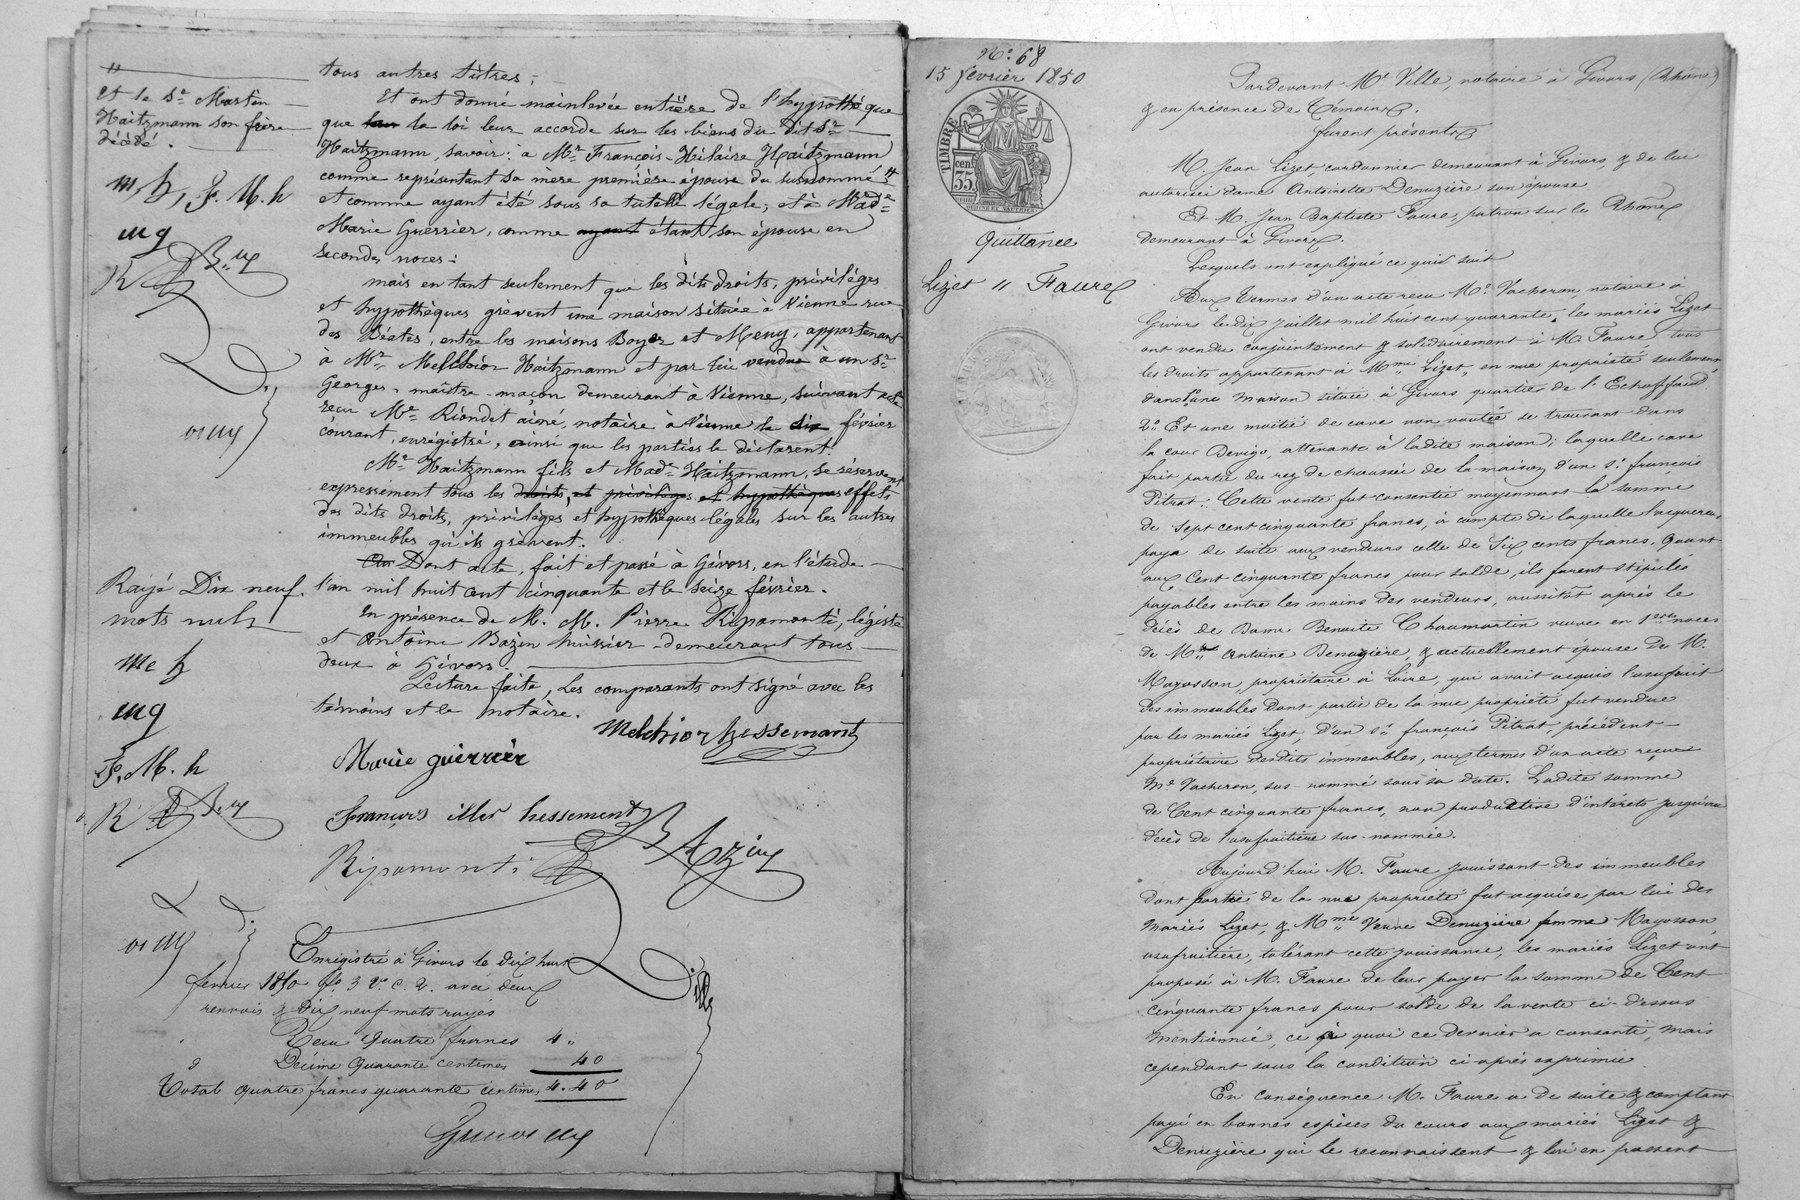 et le Sr Martin
Haitzmann son frère
décédé.
M, h, F. M. h
mg
tous autres titres;
Et ont donné mainlevée entière de l'hypothèque
que leur la loi leur accorde sur les biens du dit Sr
Haitzmann, savoir: à Mr François-Hilaire Haitzmann
comme représentant sa mère première épouse du susnommé
et comme ayant été sous sa tutelle légale; et à Made
Marie Guerrier, comme ayant étant son épouse en
secondes noces:
mais en tant seulement que les dits droits, privilèges
et hypothèques grèvent une maison située à Vienne rue
des Béates, entre les maisons Boyer et Meny, appartenant
à Mr Melchior Haitzmann et par lui vendue à un Sr
Georges, maître-maçon demeurant à Vienne, suivant acte
reçu Me Riondet aîné, notaire à Vienne le dix février
courant, enrégistré, ainsi que les parties le déclarent.
Mr Haitzmann fils et Made Haitzmann, se réservent
expressément tous les droits, et privilèges et hypothèques effets
des dits droits, privilèges et hypothèques légales sur les autres
immeubles qu'ils grèvent.
Dont acte, fait et passé à Givors, en l'étude
l'an mil huit cent cinquante et le seize février.
En présence de M. M. Pierre Ripamonti, légiste
et Antoine Bazin huissier demeurant tous
deux à Givors.
Lecture faite, les comparants ont signé avec les
témoins et le notaire.
Rayé Dix neuf
mots nuls
Mc h
mg
F. M. h
Melchior hessemant
Marie guerrier
françois iller hessement
Ripamonti
Bazin
Enregistré à Givors le dix huit
février 1850 fo 3 Vo C. 2. avec deux
renvois & dix neuf mots rayés
Reçu quatre francs 4 "
Décime quarante centimes 40
Total quatre francs quarante centimes 4.40
No 68
15 février 1850
TIMBRE
35 cen
Quittance
Lizet " Faure
Pardevant Me Ville, notaire à Givors (Rhône)
& en présence de Témoins.
furent présents
M. Jean Lizet, cordonnier demeurant à Givors, & de lui
autorisée dame Antoinette Denuzière son épouse
Et M. Jean Baptiste Faure, patron sur le Rhône
demeurant à Givors.
Lesquels ont expliqué ce qui suit
Aux termes d'un acte reçu Me Vacheron, notaire à
Givors le dix juillet mil huit cent quarante, les mariés Lizet
ont vendu conjointement & solidairement à M. Faure tous
les droits appartenant à Mme Lizet, en nue propriété seulement
dans 1o une maison située à Givors quartier de l'Echaffaud
2o Et une moitié de cave non voutée se trouvant dans
la cour Devigo, attenante à ladite maison; laquelle cave
fait partie du rez de chaussée de la maison d'un Sr françois
Pitrat. Cette vente fut consentie moyennant la somme
de sept cent cinquante francs, à compte de laquelle l'acquéreur
paya de suite aux vendeurs celle de Six cents francs, Quant
aux Cent cinquante francs pour solde, ils furent stipulés
payables entre les mains des vendeurs, aussitôt après le
décès de Dame Benoite Chaumartin veuve en 1ères noces
de Mr Antoine Denuzière, & actuellement épouse de M.
Mayosson, propriétaire à Loire, qui avait acquis l'usufruit
des immeubles dont partie de la nue propriété fut vendue
par les mariés Lizet, d'un Sr françois Pitrat, précédent
propriétaire desdits immeubles, aux termes d'un acte reçu
Me Vacheron, sus-nommé sous sa date. Ladite somme
de Cent cinquante francs, non productive d'intérêts jusqu'au
décès de l'usufruitière sus-nommée.
Aujourd'hui M. Faure jouissant des immeubles
dont partie de la nue propriété fut acquise par lui des
mariés Lizet, & Mme Veuve Denuzière femme Mayosson
usufruitière, tolérant cette jouissance, les mariés Lizet ont
proposé à M. Faure de leur payer la somme de Cent
cinquante francs pour solde de la vente ci-dessus
mentionnée, ce à quoi ce dernier a consenti, mais
cependant sous la condition ci après exprimée
En conséquence M. Faure a de suite & comptant
payé en bonnes espèces du cours aux mariés Lizet &
Denuzière qui le reconnaissent & lui en passent